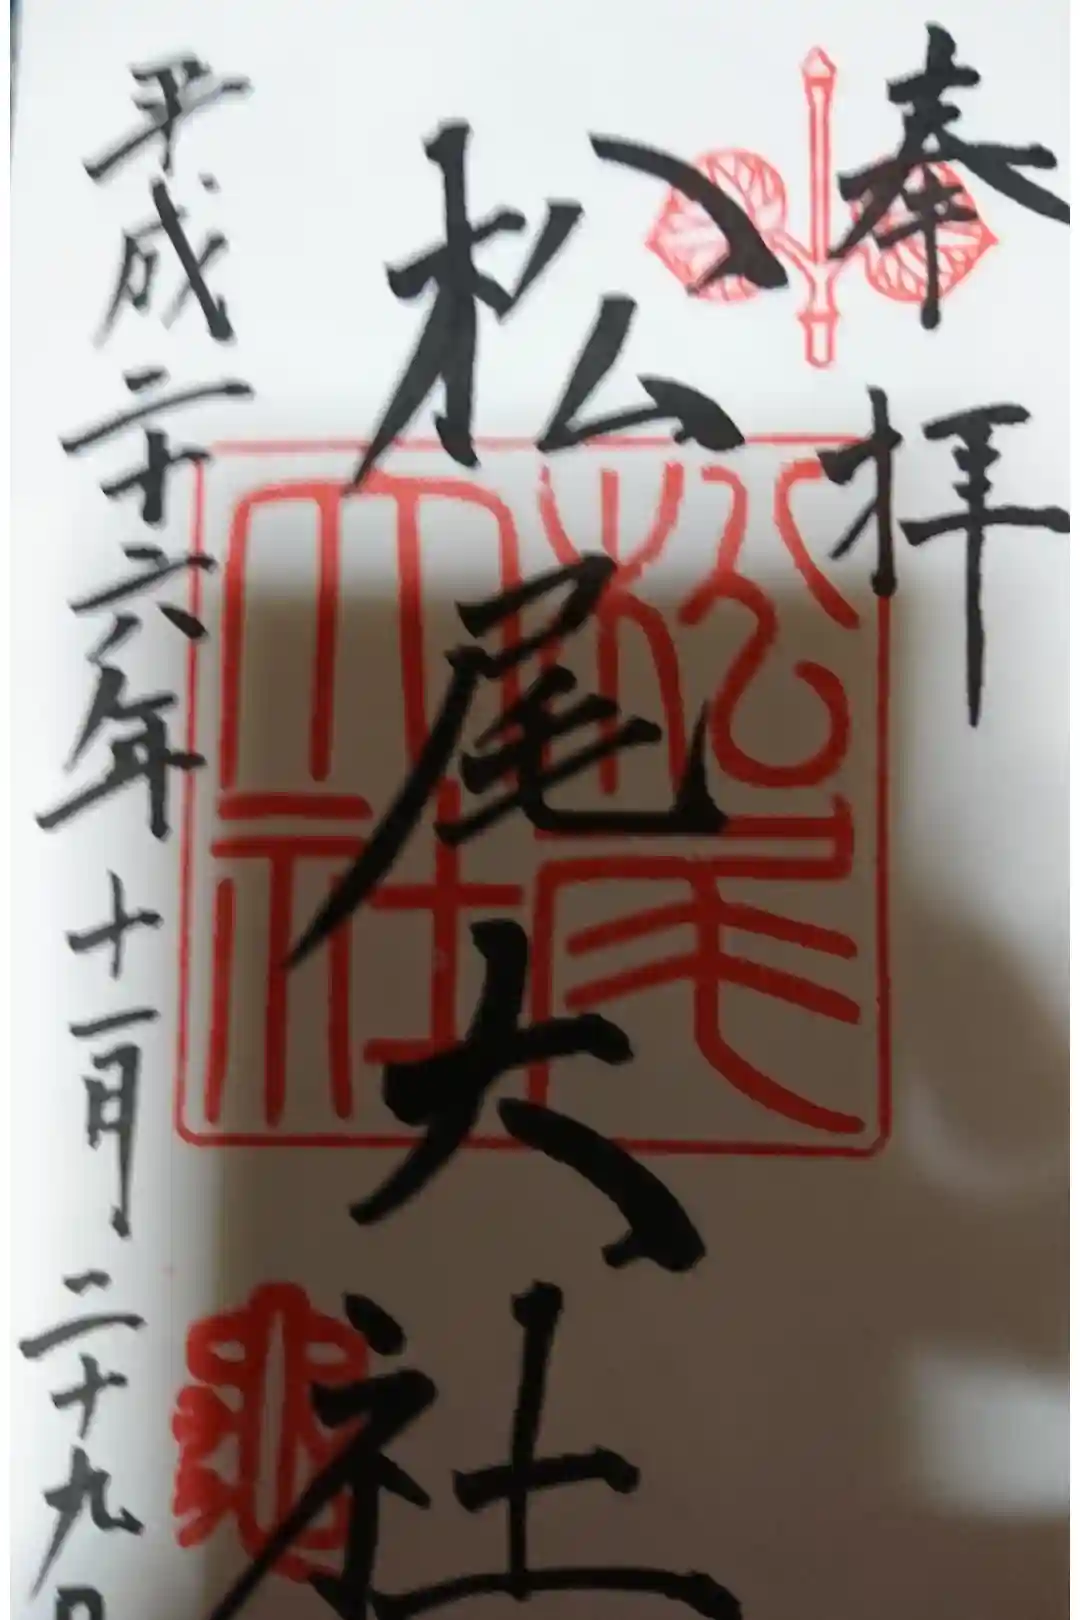 奉拝
松尾大社
松尾大社
平成二十六年十一月二十九日